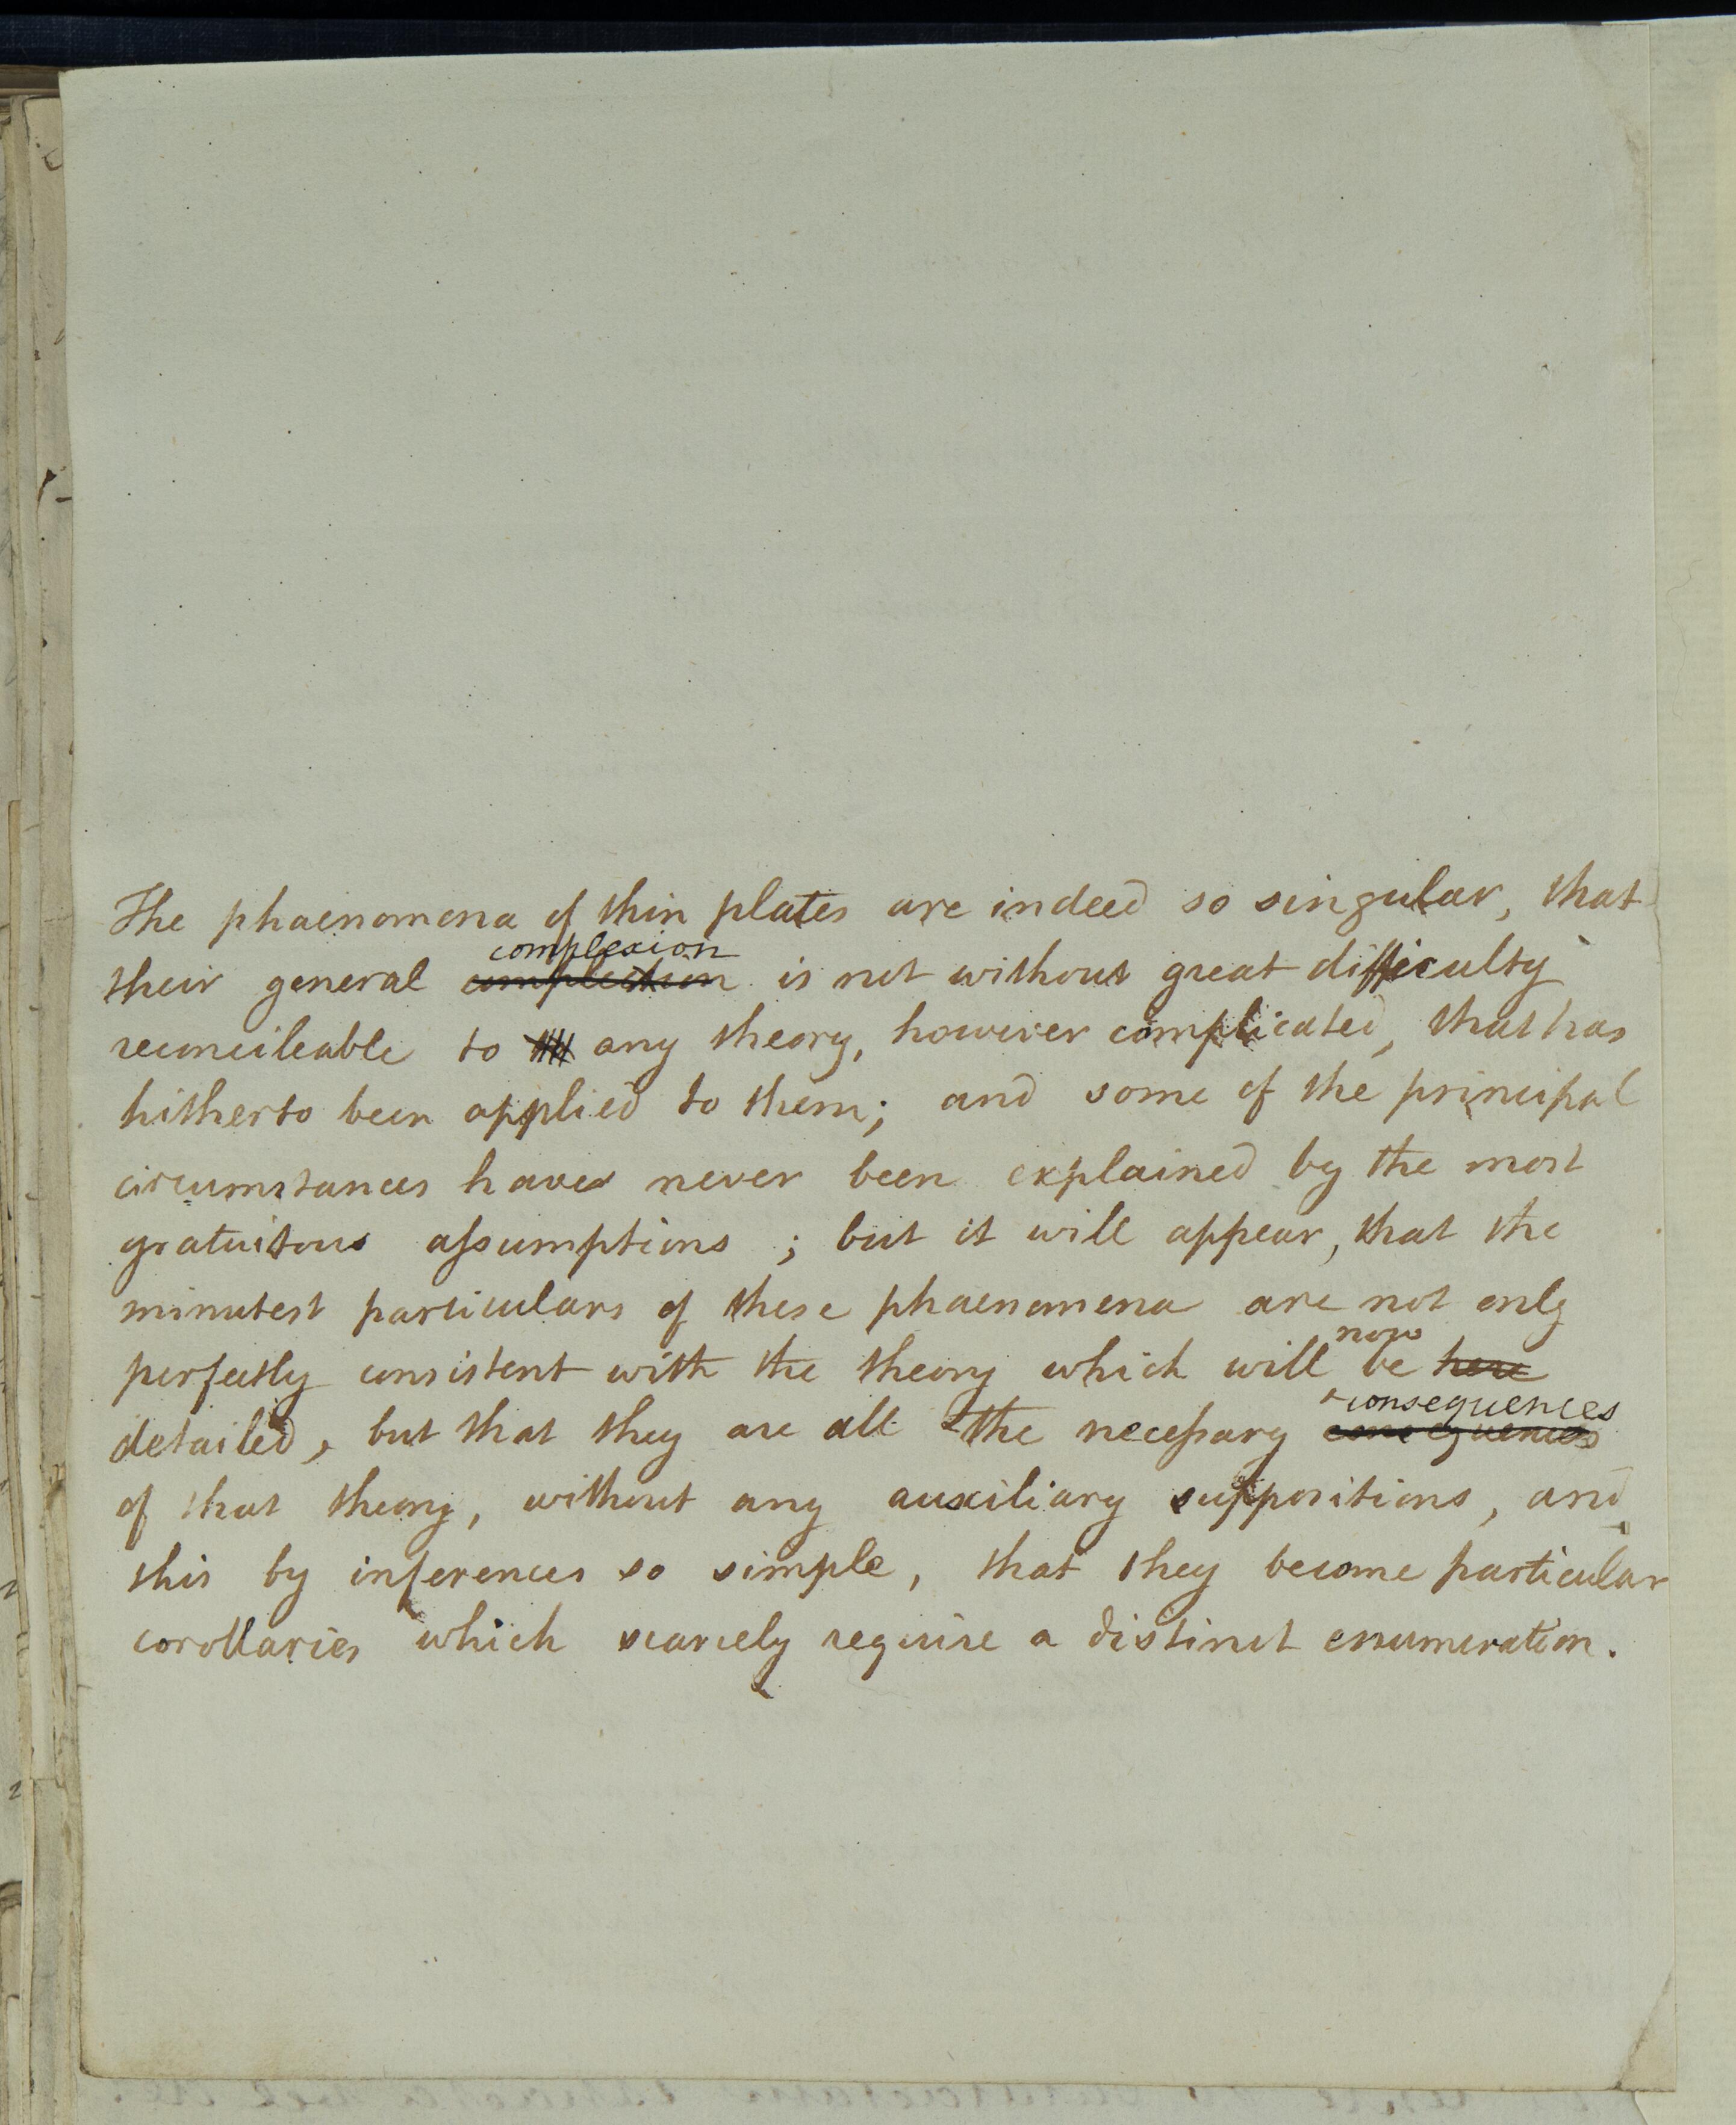 The phaenomena of thin plates are indeed so singular, that
complexion
their general complection is not without great difficulty
reconcileable to any theory, however complicated, that has
hitherto been applied to them; and some of the principal
circumstances have never been explained by the most
gratuitous assumptions ; but it will appear, that the
minutest particulars of these phaenomena are not only
now
perfectly consistent with the theory which will be here
consequences
detailed, but that they are all the necessary consequences
of that theory, without any auxiliary suppositions, and
this by inferences so simple, that they become particular
corollaries which scarcely require a distinct enumeration.